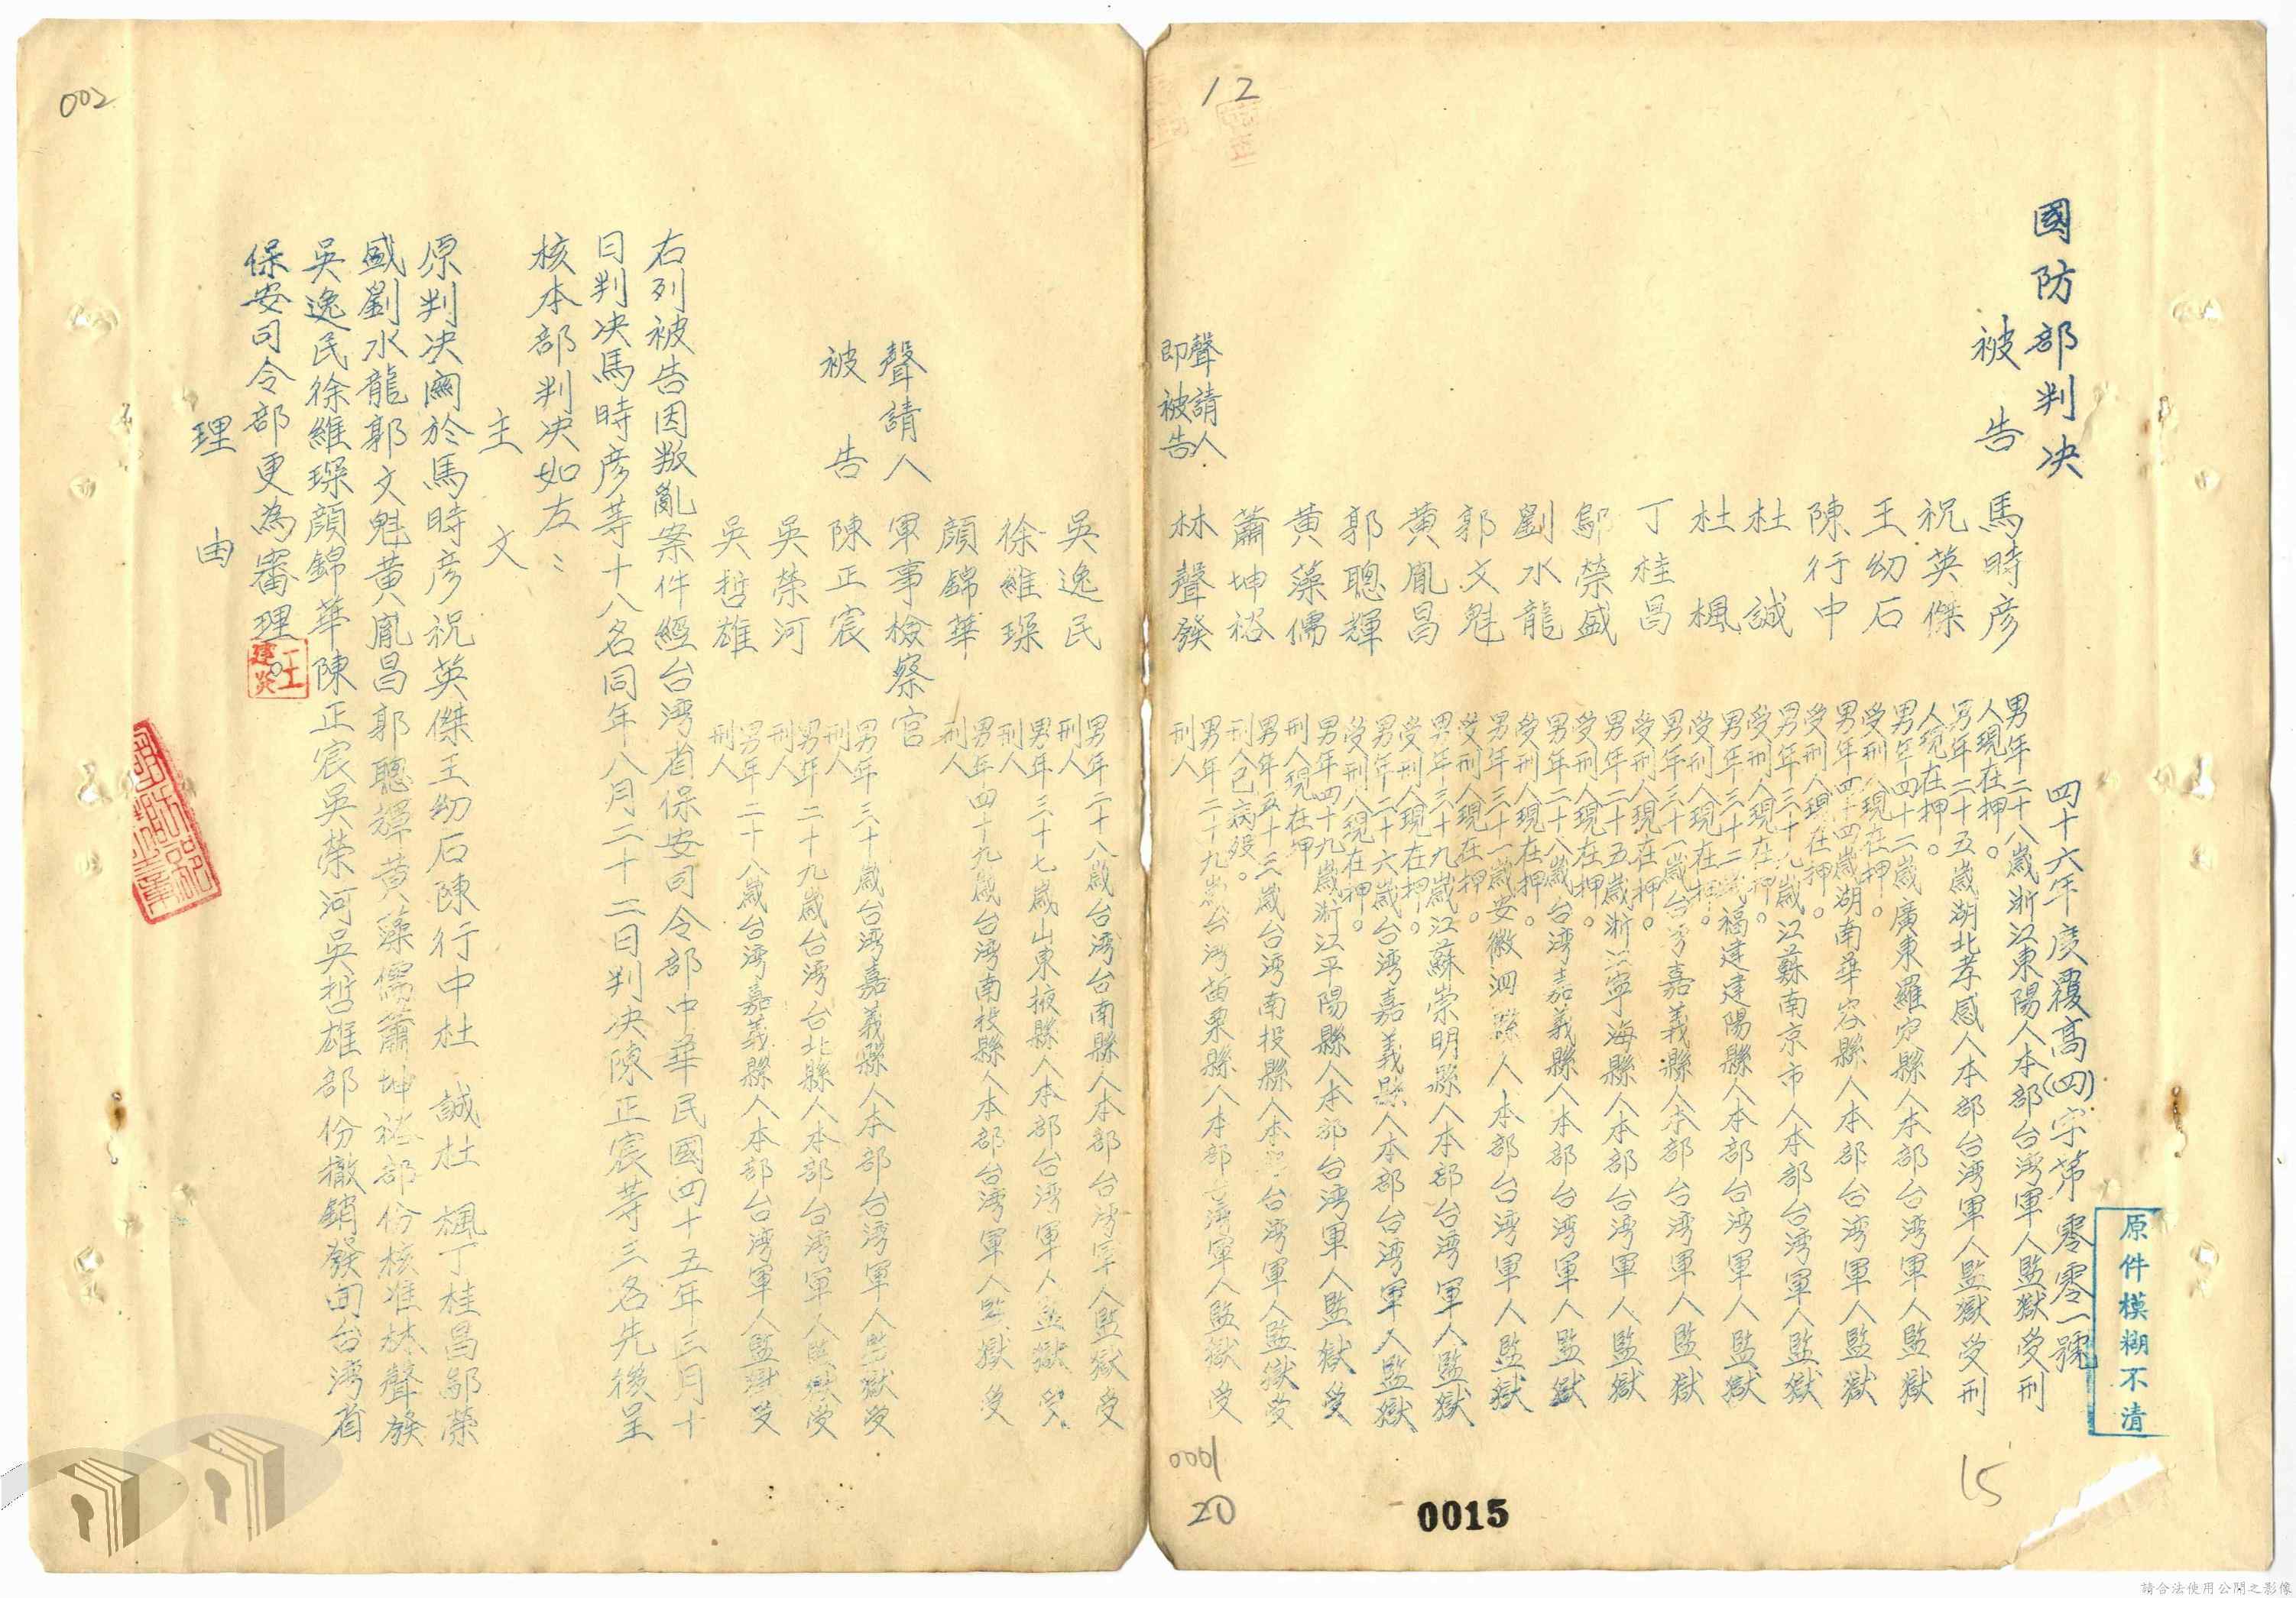 12
國防部判决
四十六年度覆高(四)字第零零一號
原件模糊不清
被告
馬時彦 男年二十八歲浙江東陽人本部台湾軍人監獄受刑人現在押。
祝英傑 男年二十五歲湖北孝感人本部台湾軍人監獄受刑人現在押。
王幼石 男年四十二歲廣東羅定縣人本部台湾軍人監獄受刑人現在押。
陳行中 男年四十四歲湖南華容縣人本部台湾軍人監獄受刑人現在押。
杜誠 男年三十九歲江蘇南京市人本部台湾軍人監獄受刑人現在押。
杜楓 男年三十二歲福建建陽縣人本部台湾軍人監獄受刑人現在押。
丁桂昌 男年三十一歲台湾嘉義縣人本部台湾軍人監獄受刑人現在押。
鄔榮盛 男年二十五歲浙江寧海縣人本部台湾軍人監獄受刑人現在押。
劉水龍 男年二十八歲台湾嘉義縣人本部台湾軍人監獄受刑人現在押。
郭文魁 男年三十一歲安徽泗縣人本部台湾軍人監獄受刑人現在押。
黄胤昌 男年三十九歲江蘇崇明縣人本部台湾軍人監獄受刑人現在押。
郭聰輝 男年二十六歲台湾嘉義縣人本部台湾軍人監獄受刑人現在押。
黄藻儒 男年四十九歲浙江平陽縣人本部台湾軍人監獄受刑人現在押
蕭坤裕 男年五十三歲台湾南投縣人本部台湾軍人監獄受刑人已病殁。
聲請人即被告
林聲發 男年二十九歲台湾苗栗縣人本部台湾軍人監獄受刑人
15
0001
20
0015
002
吳逸民 男年二十八歲台湾台南縣人本部台湾軍人監獄受刑人
徐維琛 男年三十七歲山東掖縣人本部台湾軍人監獄受刑人
顔錦華 男年四十九歲台湾南投縣人本部台湾軍人監獄受刑人
聲請人 軍事檢察官
被告 陳正宸 男年三十歲台湾嘉義縣人本部台湾軍人監獄受刑人
吳榮河 男年二十九歲台湾台北縣人本部台湾軍人監獄受刑人
吳哲雄 男年二十八歲台湾嘉義縣人本部台湾軍人監獄受刑人
右列被告因叛亂案件經台湾省保安司令部中華民國四十五年三月十
日判决馬時彦等十八名同年八月二十二日判决陳正宸等三名先後呈
核本部判决如左：
主文
原判决關於馬時彦祝英傑王幼石陳行中杜 誠杜 楓丁桂昌鄔榮
盛劉水龍郭文魁黄胤昌郭聰輝黄藻儒蕭坤裕部份核准林聲發
吳逸民徐維琛顔錦華陳正宸吳榮河吳哲雄部份撤銷發囬台湾省
保安司令部更為審理。
王建炎
理由
請合法使用公開之影像